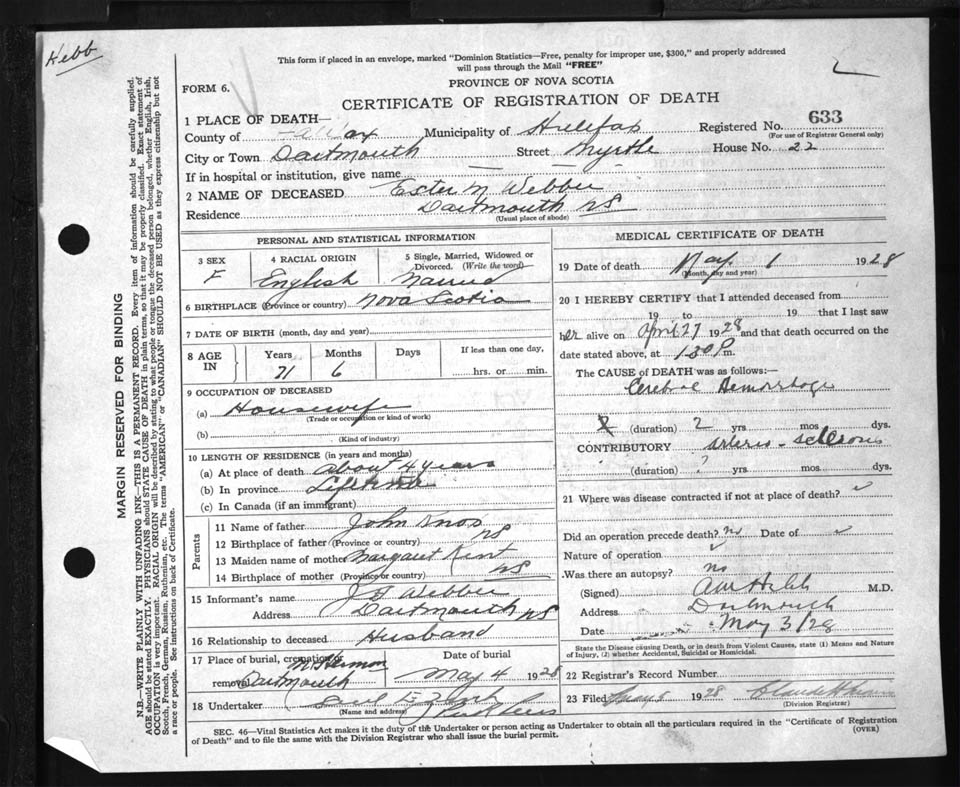 Hebb
This form if placed in an envelope, marked "Dominion Statistics—Free, penalty for improper use, $300," and properly addressed
will pass through the Mail "FREE"
PROVINCE OF NOVA SCOTIA
FORM 6.
CERTIFICATE OF REGISTRATION OF DEATH
1 PLACE OF DEATH—
Registered No. 633
(For use of Registrar General only)
County of Halifax Municipality of Halifax
City or Town Dartmouth Street Myrtle House No. 22
If in hospital or institution, give name
2 NAME OF DECEASED Ester M Webber
Residence Dartmouth NS
(Usual place of abode)
PERSONAL AND STATISTICAL INFORMATION
3 SEX F
4 RACIAL ORIGIN English
5 Single, Married, Widowed or Divorced. (Write the word) Married
6 BIRTHPLACE (Province or country) Nova Scotia
7 DATE OF BIRTH (month, day and year)
8 AGE IN Years 71 Months 6 Days If less than one day, hrs. or min.
9 OCCUPATION OF DECEASED
(a) Housewife
(Trade or occupation or kind of work)
(b)
(Kind of industry)
10 LENGTH OF RESIDENCE (in years and months)
(a) At place of death About 4 years
(b) In province Lifetime
(c) In Canada (if an immigrant)
Parents
11 Name of father John Knox
12 Birthplace of father (Province or country) NS
13 Maiden name of mother Margaret Kent
14 Birthplace of mother (Province or country) NS
15 Informant's name J Webber
Address Dartmouth NS
16 Relationship to deceased Husband
17 Place of burial, cremation or removal Mt Hermon Dartmouth
Date of burial May 4 1928
18 Undertaker
(Name and address)
MEDICAL CERTIFICATE OF DEATH
19 Date of death May 1 1928
(Month, day and year)
20 I HEREBY CERTIFY that I attended deceased from
19 to 19 that I last saw
her alive on April 27 1928 and that death occurred on
date stated above, at 1.30 P m.
The CAUSE of DEATH was as follows:—
Cerebral Hemorrhage
(duration) 2 yrs mos dys.
CONTRIBUTORY arterio-sclerosis
(duration) ? yrs mos dys.
21 Where was disease contracted if not at place of death?
Did an operation precede death? no Date of
Nature of operation
Was there an autopsy? no
(Signed) M.D.
Address Dartmouth
Date May 3/28
State the Disease causing Death, or in death from Violent Causes, state (1) Means and Nature
of Injury, (2) whether Accidental, Suicidal or Homicidal.
22 Registrar's Record Number
23 Filed 1928
(Division Registrar)
SEC. 46—Vital Statistics Act makes it the duty of the Undertaker or person acting as Undertaker to obtain all the particulars required in the "Certificate of Registration
of Death" and to file the same with the Division Registrar who shall issue the burial permit.
(OVER)
MARGIN RESERVED FOR BINDING
N.B.—WRITE PLAINLY WITH UNFADING INK—THIS IS A PERMANENT RECORD. Every item of information should be carefully supplied.
AGE should be stated EXACTLY. PHYSICIANS should STATE CAUSE OF DEATH in plain terms, so that it may be properly classified. Exact statement of
OCCUPATION is very important. RACIAL ORIGIN will be described by stating to what people or tongue the deceased person belonged, whether English, Irish,
Scotch, French, German, Russian, Ruthenian, etc. The terms "AMERICAN" or "CANADIAN" SHOULD NOT BE USED as they express citizenship but not
a race or people. See instructions on back of Certificate.